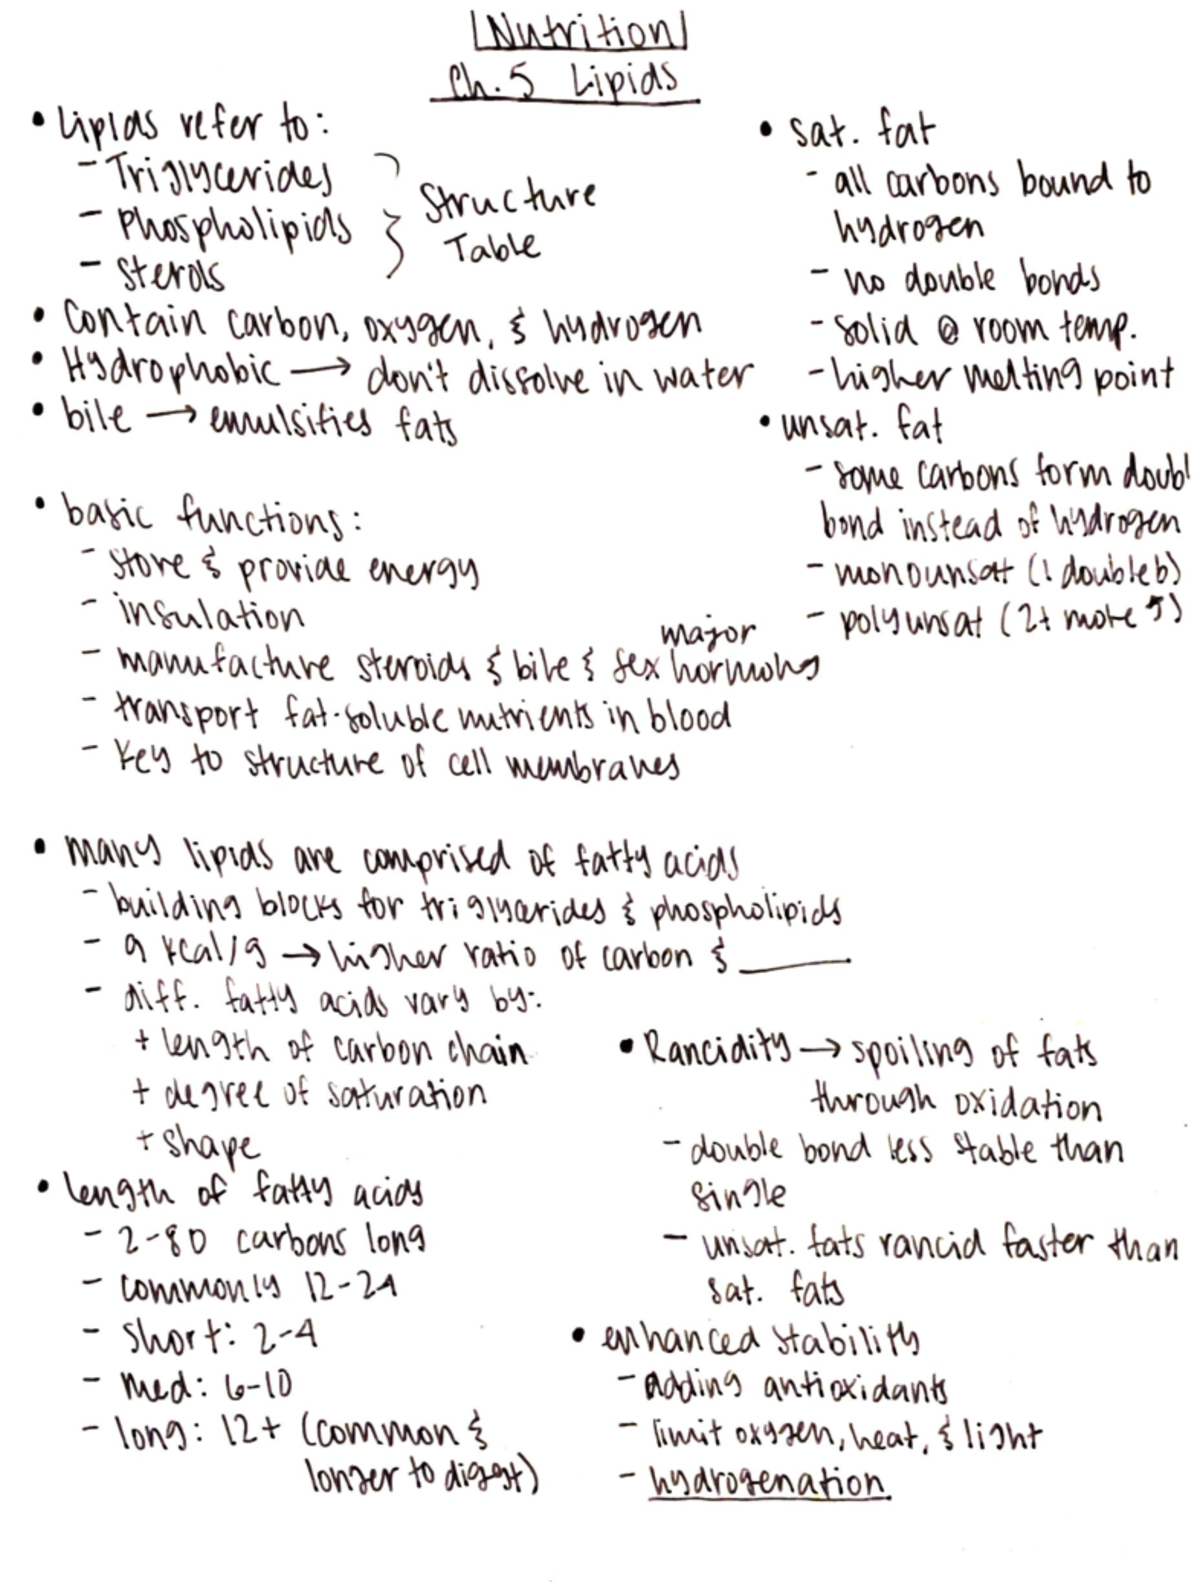 Nutrition
Ch. 5 Lipids
• Lipids refer to:
- Triglycerides
- Phospholipids
- Sterols
} Structure
Table
• Contain carbon, oxygen, & hydrogen
• Hydrophobic → don't dissolve in water
• bile → emulsifies fats
• basic functions:
- store & provide energy
- insulation
- manufacture steroids & bile & sex major hormones
- transport fat-soluble nutrients in blood
- key to structure of cell membranes
• many lipids are comprised of fatty acids
- building blocks for triglycerides & phospholipids
- 9 kcal/g → higher ratio of carbon & ____
- diff. fatty acids vary by:
+ length of carbon chain
+ degree of saturation
+ shape
• length of fatty acids
- 2-80 carbons long
- commonly 12-24
- short: 2-4
- med: 6-10
- long: 12+ (common &
longer to digest)
• sat. fat
- all carbons bound to
hydrogen
- no double bonds
- solid @ room temp.
- higher melting point
• unsat. fat
- some carbons form doubl
bond instead of hydrogen
- monounsat (1 double b)
- polyunsat (2+ more)
• Rancidity → spoiling of fats
through oxidation
- double bond less stable than
single
- unsat. fats rancid faster than
sat. fats
• enhanced stability
- adding antioxidants
- limit oxygen, heat, & light
- hydrogenation